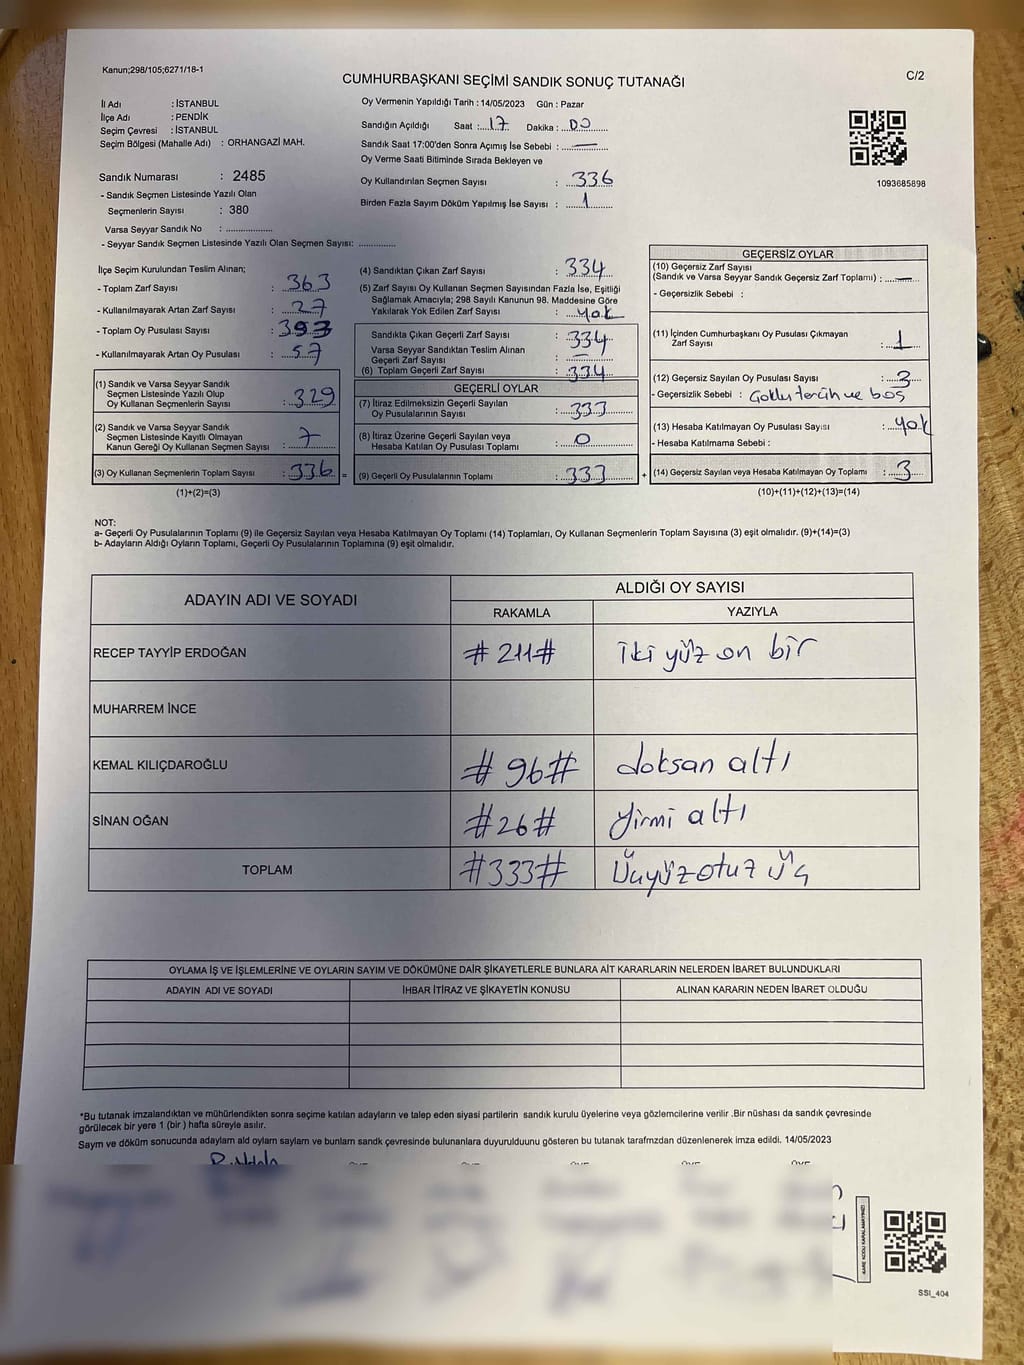 Kanun;298/105;6271/18-1
C/2
CUMHURBAŞKANI SEÇİMİ SANDIK SONUÇ TUTANAĞI
İl Adı : İSTANBUL
İlçe Adı : PENDİK
Seçim Çevresi : İSTANBUL
Seçim Bölgesi (Mahalle Adı) : ORHANGAZİ MAH.
Sandık Numarası : 2485
- Sandık Seçmen Listesinde Yazılı Olan
Seçmenlerin Sayısı : 380
Varsa Seyyar Sandık No :
- Seyyar Sandık Seçmen Listesinde Yazılı Olan Seçmen Sayısı:
Oy Vermenin Yapıldığı Tarih : 14/05/2023 Gün : Pazar
Sandığın Açıldığı Saat : 17 Dakika : 00
Sandık Saat 17:00'den Sonra Açımış İse Sebebi : —
Oy Verme Saati Bitiminde Sırada Bekleyen ve
Oy Kullandırılan Seçmen Sayısı : 336
Birden Fazla Sayım Döküm Yapılmış İse Sayısı : 1
1093685898
İlçe Seçim Kurulundan Teslim Alınan;
- Toplam Zarf Sayısı : 363
- Kullanılmayarak Artan Zarf Sayısı : 27
- Toplam Oy Pusulası Sayısı : 393
- Kullanılmayarak Artan Oy Pusulası : 57
(1) Sandık ve Varsa Seyyar Sandık
Seçmen Listesinde Yazılı Olup
Oy Kullanan Seçmenlerin Sayısı : 329
(2) Sandık ve Varsa Seyyar Sandık
Seçmen Listesinde Kayıtlı Olmayan
Kanun Gereği Oy Kullanan Seçmen Sayısı : 7
(3) Oy Kullanan Seçmenlerin Toplam Sayısı : 336 =
(1)+(2)=(3)
(4) Sandıktan Çıkan Zarf Sayısı : 334
(5) Zarf Sayısı Oy Kullanan Seçmen Sayısından Fazla İse, Eşitliği
Sağlamak Amacıyla; 298 Sayılı Kanunun 98. Maddesine Göre
Yakılarak Yok Edilen Zarf Sayısı : yok
Sandıkta Çıkan Geçerli Zarf Sayısı : 334
Varsa Seyyar Sandıktan Teslim Alınan
Geçerli Zarf Sayısı : —
(6) Toplam Geçerli Zarf Sayısı : 334
GEÇERLİ OYLAR
(7) İtiraz Edilmeksizin Geçerli Sayılan
Oy Pusulalarının Sayısı : 333
(8) İtiraz Üzerine Geçerli Sayılan veya
Hesaba Katılan Oy Pusulası Toplamı : 0
(9) Geçerli Oy Pusulalarının Toplamı : 333 +
GEÇERSİZ OYLAR
(10) Geçersiz Zarf Sayısı
(Sandık ve Varsa Seyyar Sandık Geçersiz Zarf Toplamı) : —
- Geçersizlik Sebebi :
(11) İçinden Cumhurbaşkanı Oy Pusulası Çıkmayan
Zarf Sayısı : 1
(12) Geçersiz Sayılan Oy Pusulası Sayısı : 3
- Geçersizlik Sebebi : Çoklu tercih ve boş
(13) Hesaba Katılmayan Oy Pusulası Sayısı : yok
- Hesaba Katılmama Sebebi :
(14) Geçersiz Sayılan veya Hesaba Katılmayan Oy Toplamı : 3
(10)+(11)+(12)+(13)=(14)
NOT:
a- Geçerli Oy Pusulalarının Toplamı (9) ile Geçersiz Sayılan veya Hesaba Katılmayan Oy Toplamı (14) Toplamları, Oy Kullanan Seçmenlerin Toplam Sayısına (3) eşit olmalıdır. (9)+(14)=(3)
b- Adayların Aldığı Oyların Toplamı, Geçerli Oy Pusulalarının Toplamına (9) eşit olmalıdır.
ADAYIN ADI VE SOYADI
ALDIĞI OY SAYISI
RAKAMLA YAZIYLA
RECEP TAYYİP ERDOĞAN # 211 # iki yüz on bir
MUHARREM İNCE
KEMAL KILIÇDAROĞLU # 96 # doksan altı
SİNAN OĞAN # 26 # yirmi altı
TOPLAM # 333 # Üçyüz otuz üç
OYLAMA İŞ VE İŞLEMLERİNE VE OYLARIN SAYIM VE DÖKÜMÜNE DAİR ŞİKAYETLERLE BUNLARA AİT KARARLARIN NELERDEN İBARET BULUNDUKLARI
ADAYIN ADI VE SOYADI İHBAR İTİRAZ VE ŞİKAYETİN KONUSU ALINAN KARARIN NEDEN İBARET OLDUĞU
*Bu tutanak imzalandıktan ve mühürlendikten sonra seçime katılan adayların ve talep eden siyasi partilerin sandık kurulu üyelerine veya gözlemcilerine verilir .Bir nüshası da sandık çevresinde
görülecek bir yere 1 (bir ) hafta süreyle asılır.
Sayım ve döküm sonucunda adaylam ald oylam saylam ve bunlam sandk çevresinde bulunanlara duyurulduunu gösteren bu tutanak tarafmzdan düzenlenerek imza edildi. 14/05/2023
KARE KODU KARALAMAYINIZ!
SSI_404